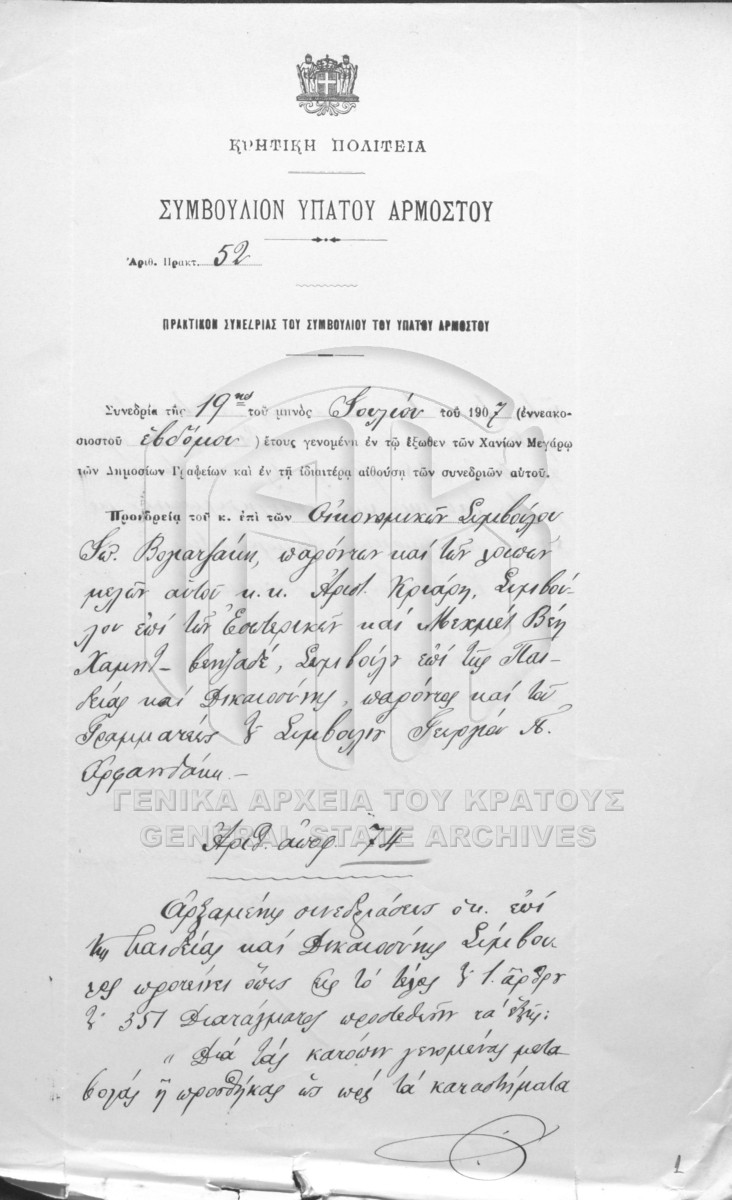 ΚΡΗΤΙΚΗ ΠΟΛΙΤΕΙΑ
ΣΥΜΒΟΥΛΙΟΝ ΥΠΑΤΟΥ ΑΡΜΟΣΤΟΥ
Ἀριθ. Πρακτ. 52
ΠΡΑΚΤΙΚΟΝ ΣΥΝΕΔΡΙΑΣ ΤΟΥ ΣΥΜΒΟΥΛΙΟΥ ΤΟΥ ΥΠΑΤΟΥ ΑΡΜΟΣΤΟΥ
Συνεδρία τῆς 19ης τοῦ μηνὸς Ἰουλίου τοῦ 1907 (ἐννεακο-
σιοστοῦ ἑβδόμου) ἔτους γενομένη ἐν τῷ ἔξωθεν τῶν Χανίων Μεγάρῳ
τῶν Δημοσίων Γραφείων καὶ ἐν τῇ ἰδιαιτέρᾳ αἰθούσῃ τῶν συνεδριῶν αὐτοῦ.
Προεδρείᾳ τοῦ κ. ἐπὶ τῶν Οἰκονομικῶν Συμβούλου
παρόντων καὶ τῶν λοιπῶν
μελῶν αὐτοῦ κ.κ. Ἀριστ. Κριάρη, Συμβού-
λου ἐπὶ τῶν Ἐσωτερικῶν καὶ Μεχμὲτ Βέη
Χαμὴτ βεηζαδέ, Συμβούλου ἐπὶ τῆς Παι-
δείας καὶ Δικαιοσύνης, παρόντος καὶ τοῦ
Γραμματέως τοῦ Συμβουλίου Γεωργίου Π.
Ὀρφανουδάκη.—
ΓΕΝΙΚΑ ΑΡΧΕΙΑ ΤΟΥ ΚΡΑΤΟΥΣ
GENERAL STATE ARCHIVES
Ἀριθ. ἀποφ. 74
Ἀρξαμένης συνεδριάσεως ὁ κ. ἐπὶ
τῆς Παιδείας καὶ Δικαιοσύνης Σύμβου-
λος προτείνει ὅπως εἰς τὸ τέλος τοῦ 1. ἄρθρου
τοῦ 351 Διατάγματος προστεθῶσιν τὰ ἑξῆς:
„ Διὰ τὰς κατόπιν γενομένας μετα
βολὰς ἢ προσθήκας ὡς πρὸς τὰ καταστήματα
1